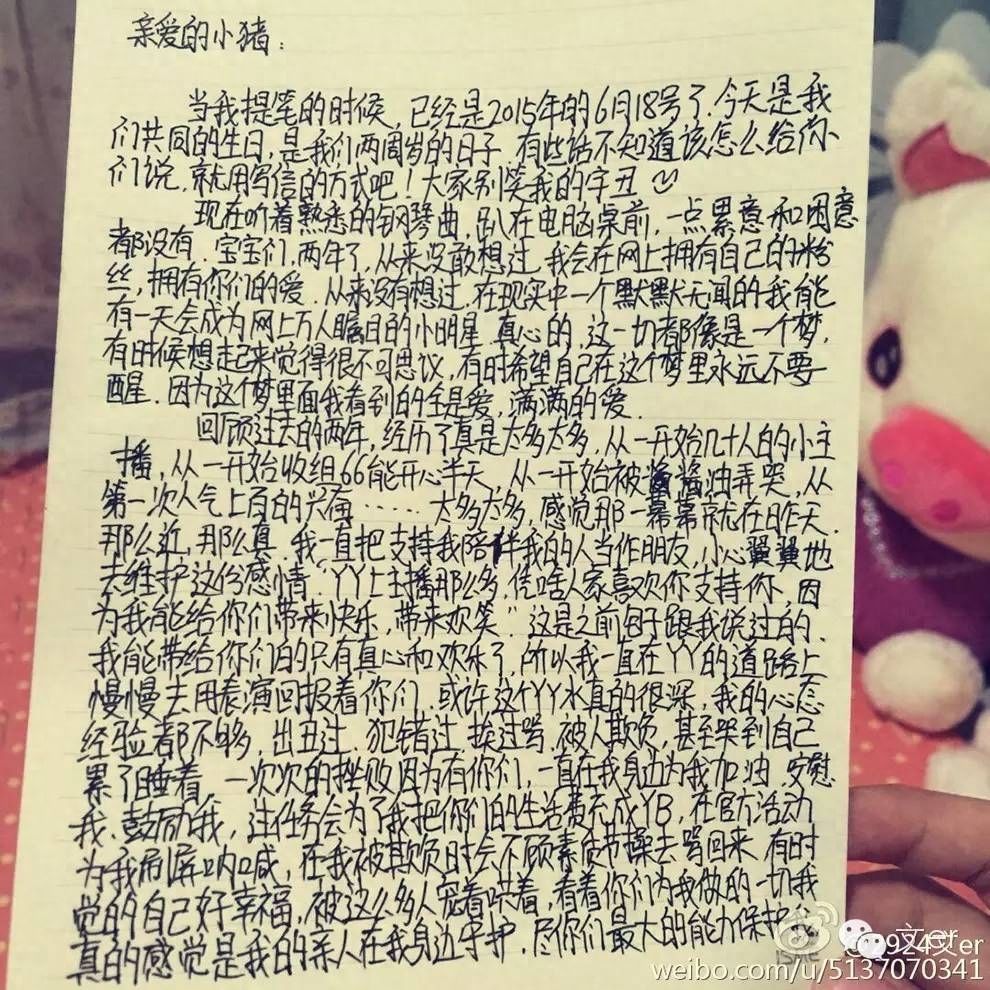 亲爱的小猪：
当我提笔的时候，已经是2015年的6月18号了.今天是我
们共同的生日，是我们两周岁的日子.有些话不知道该怎么给你
们说，就用写信的方式吧！大家别笑我的字丑
现在听着熟悉的钢琴曲，趴在电脑桌前，一点累意和困意
都没有.宝宝们，两年了，从来没敢想过，我会在网上拥有自己的粉
丝，拥有你们的爱.从来没有想过，在现实中一个默默无闻的我能
有一天会成为网上万人瞩目的小明星.真心的，这一切都像是一个梦，
有时候想起来觉得很不可思议，有时希望自己在这个梦里永远不要
醒.因为这个梦里面我看到的全是爱，满满的爱.
回顾过去的两年，经历了真是太多太多，从一开始几十人的小主
播，从一开始收组66能开心半天，从一开始被酱油弄哭，从
第一次人气上百的兴奋……太多太多，感觉那一幕幕就在昨天.
那么近，那么真.我一直把支持我陪伴我的人当作朋友，小心翼翼地
去维护这份感情.“YY上主播那么多，凭啥人家喜欢你支持你.因
为我能给你们带来快乐，带来欢笑”这是之前 跟我说过的.
我能带给你们的只有真心和欢乐了，所以我一直在YY的道路上
慢慢去用表演回报着你们.或许这个YY水真的很深，我的心态
经验都不够，出丑过.犯错过.挨过骂.被人欺负，甚至哭到自己
累了睡着，一次次的挫败因为有你们，一直在我身边为我加油.安慰
我.鼓励我，过任务会为了我把你们的生活费充成YB，在官方活动
为我刷屏呐喊，在我被欺负时会不顾素质节操去骂回来.有时
觉的自己好幸福，被这么多人宠着哄着，看着你们为我做的一切我
真的感觉是我的亲人在我身边守护.尽你们最大的能力保护我
924文er
weibo.com/u/5137070341